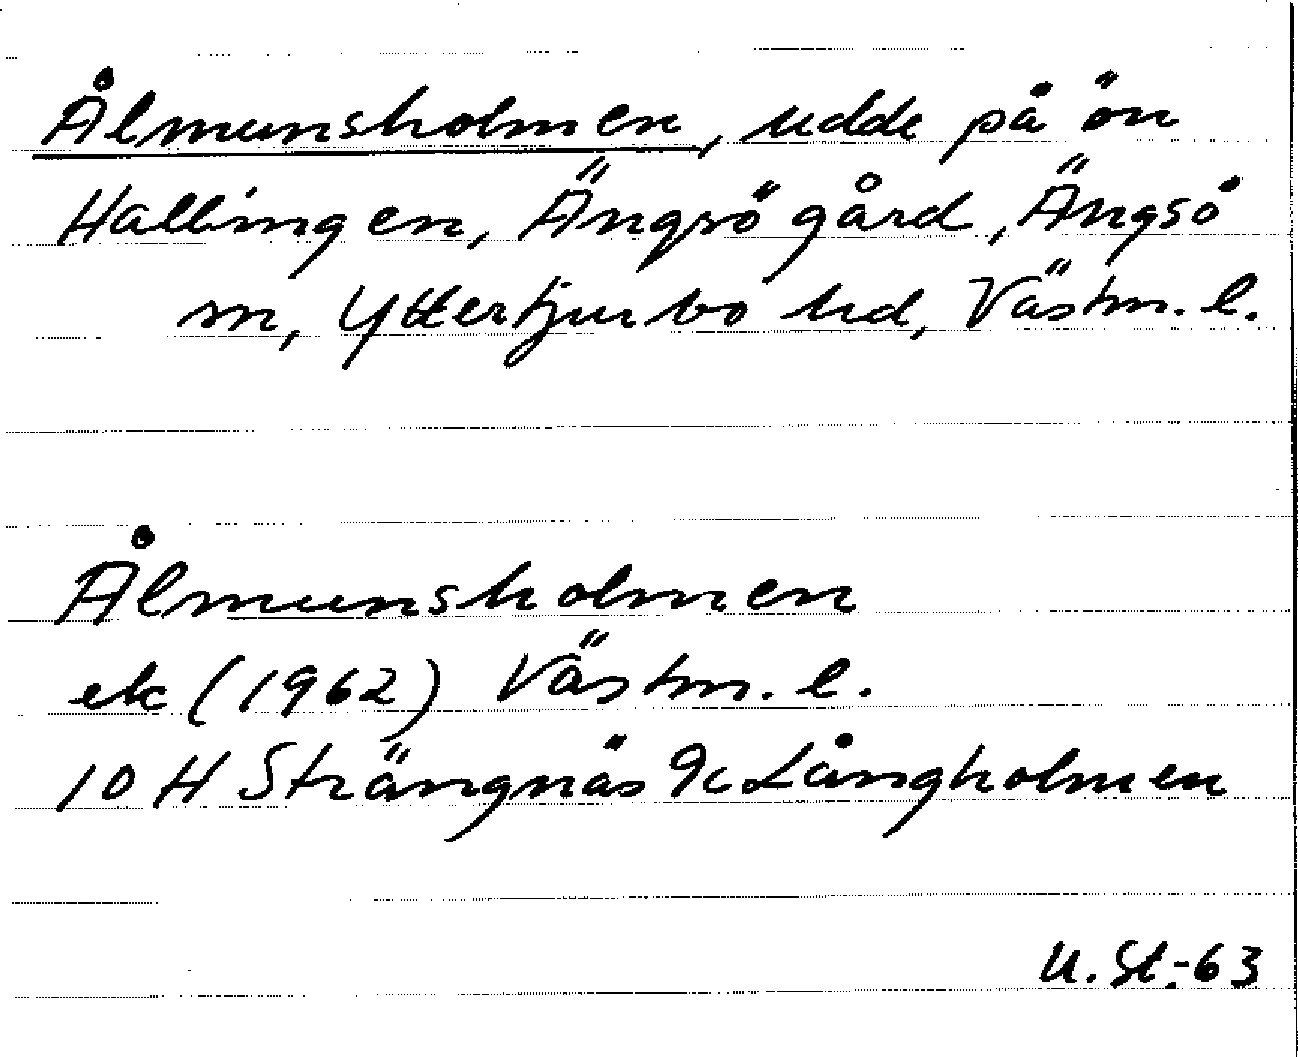 Ålmunsholmen, udde på ön
Hallingen, Ängsö gård, Ängsö
sn, Yttertjurbo hd, Västm. l.
Ålmunsholmen
ek (1962) Västm. l.
10 H Strängnäs 9c Långholmen
U. St.-63